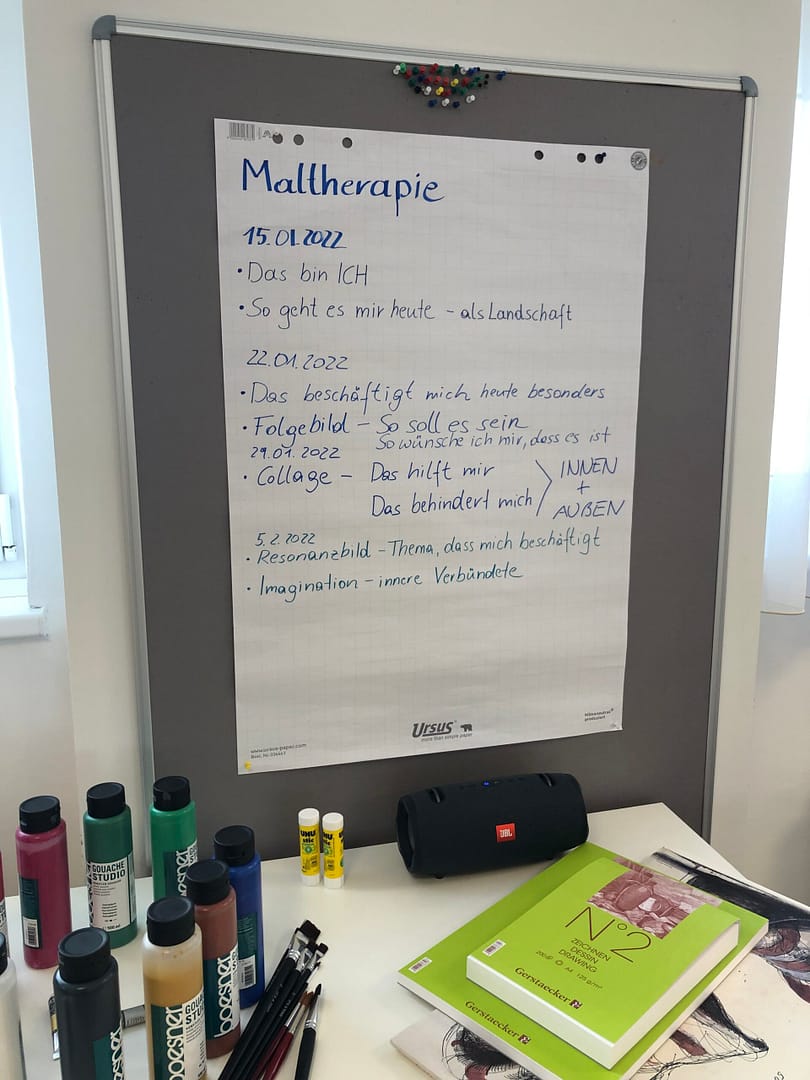 Maltherapie
15.01.2022
• Das bin ICH
• So geht es mir heute – als Landschaft
22.01.2022
• Das beschäftigt mich heute besonders
• Folgebild – So soll es sein
So wünsche ich mir, dass es ist
29.01.2022
• Collage – Das hilft mir
Das behindert mich
INNEN
+
AUßEN
5.2.2022
• Resonanzbild – Thema, dass mich beschäftigt
• Imagination – innere Verbündete
www.ursus-paper.com
Ursus
more than simple paper
GOUACHE
STUDIO
boesner
boesner
GOUA
STUD
boesner
boesner
UHU
stic
UHU
stic
JBL
N°2
ZEICHNEN
DESSIN
DRAWING
A4 125 g/m²
Gerstaecker
Gerstaecker